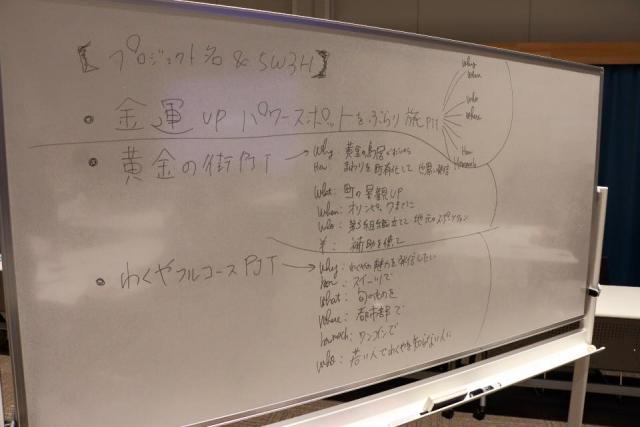 【プロジェクト名 & 5W3H】
• 金運UPパワースポットをぶらり旅PJT
Why
When
Who
Where
How
Howmuch
• 黄金の街PJT → Why: 黄金の鳥居が
How: まわりを町有化して 世界に発信
What: 町の景観UP
When: オリンピックまでに
Who: 第3組織立てて 地元のスポンサー
¥: 補助を使て
• わくやフルコースPJT → Why: わくやの魅力を発信したい
how: スイーツで
what: 旬のものを
Where: 都市部で
howmuch: ワンコインで
who: 若い人でわくやを知らない人に